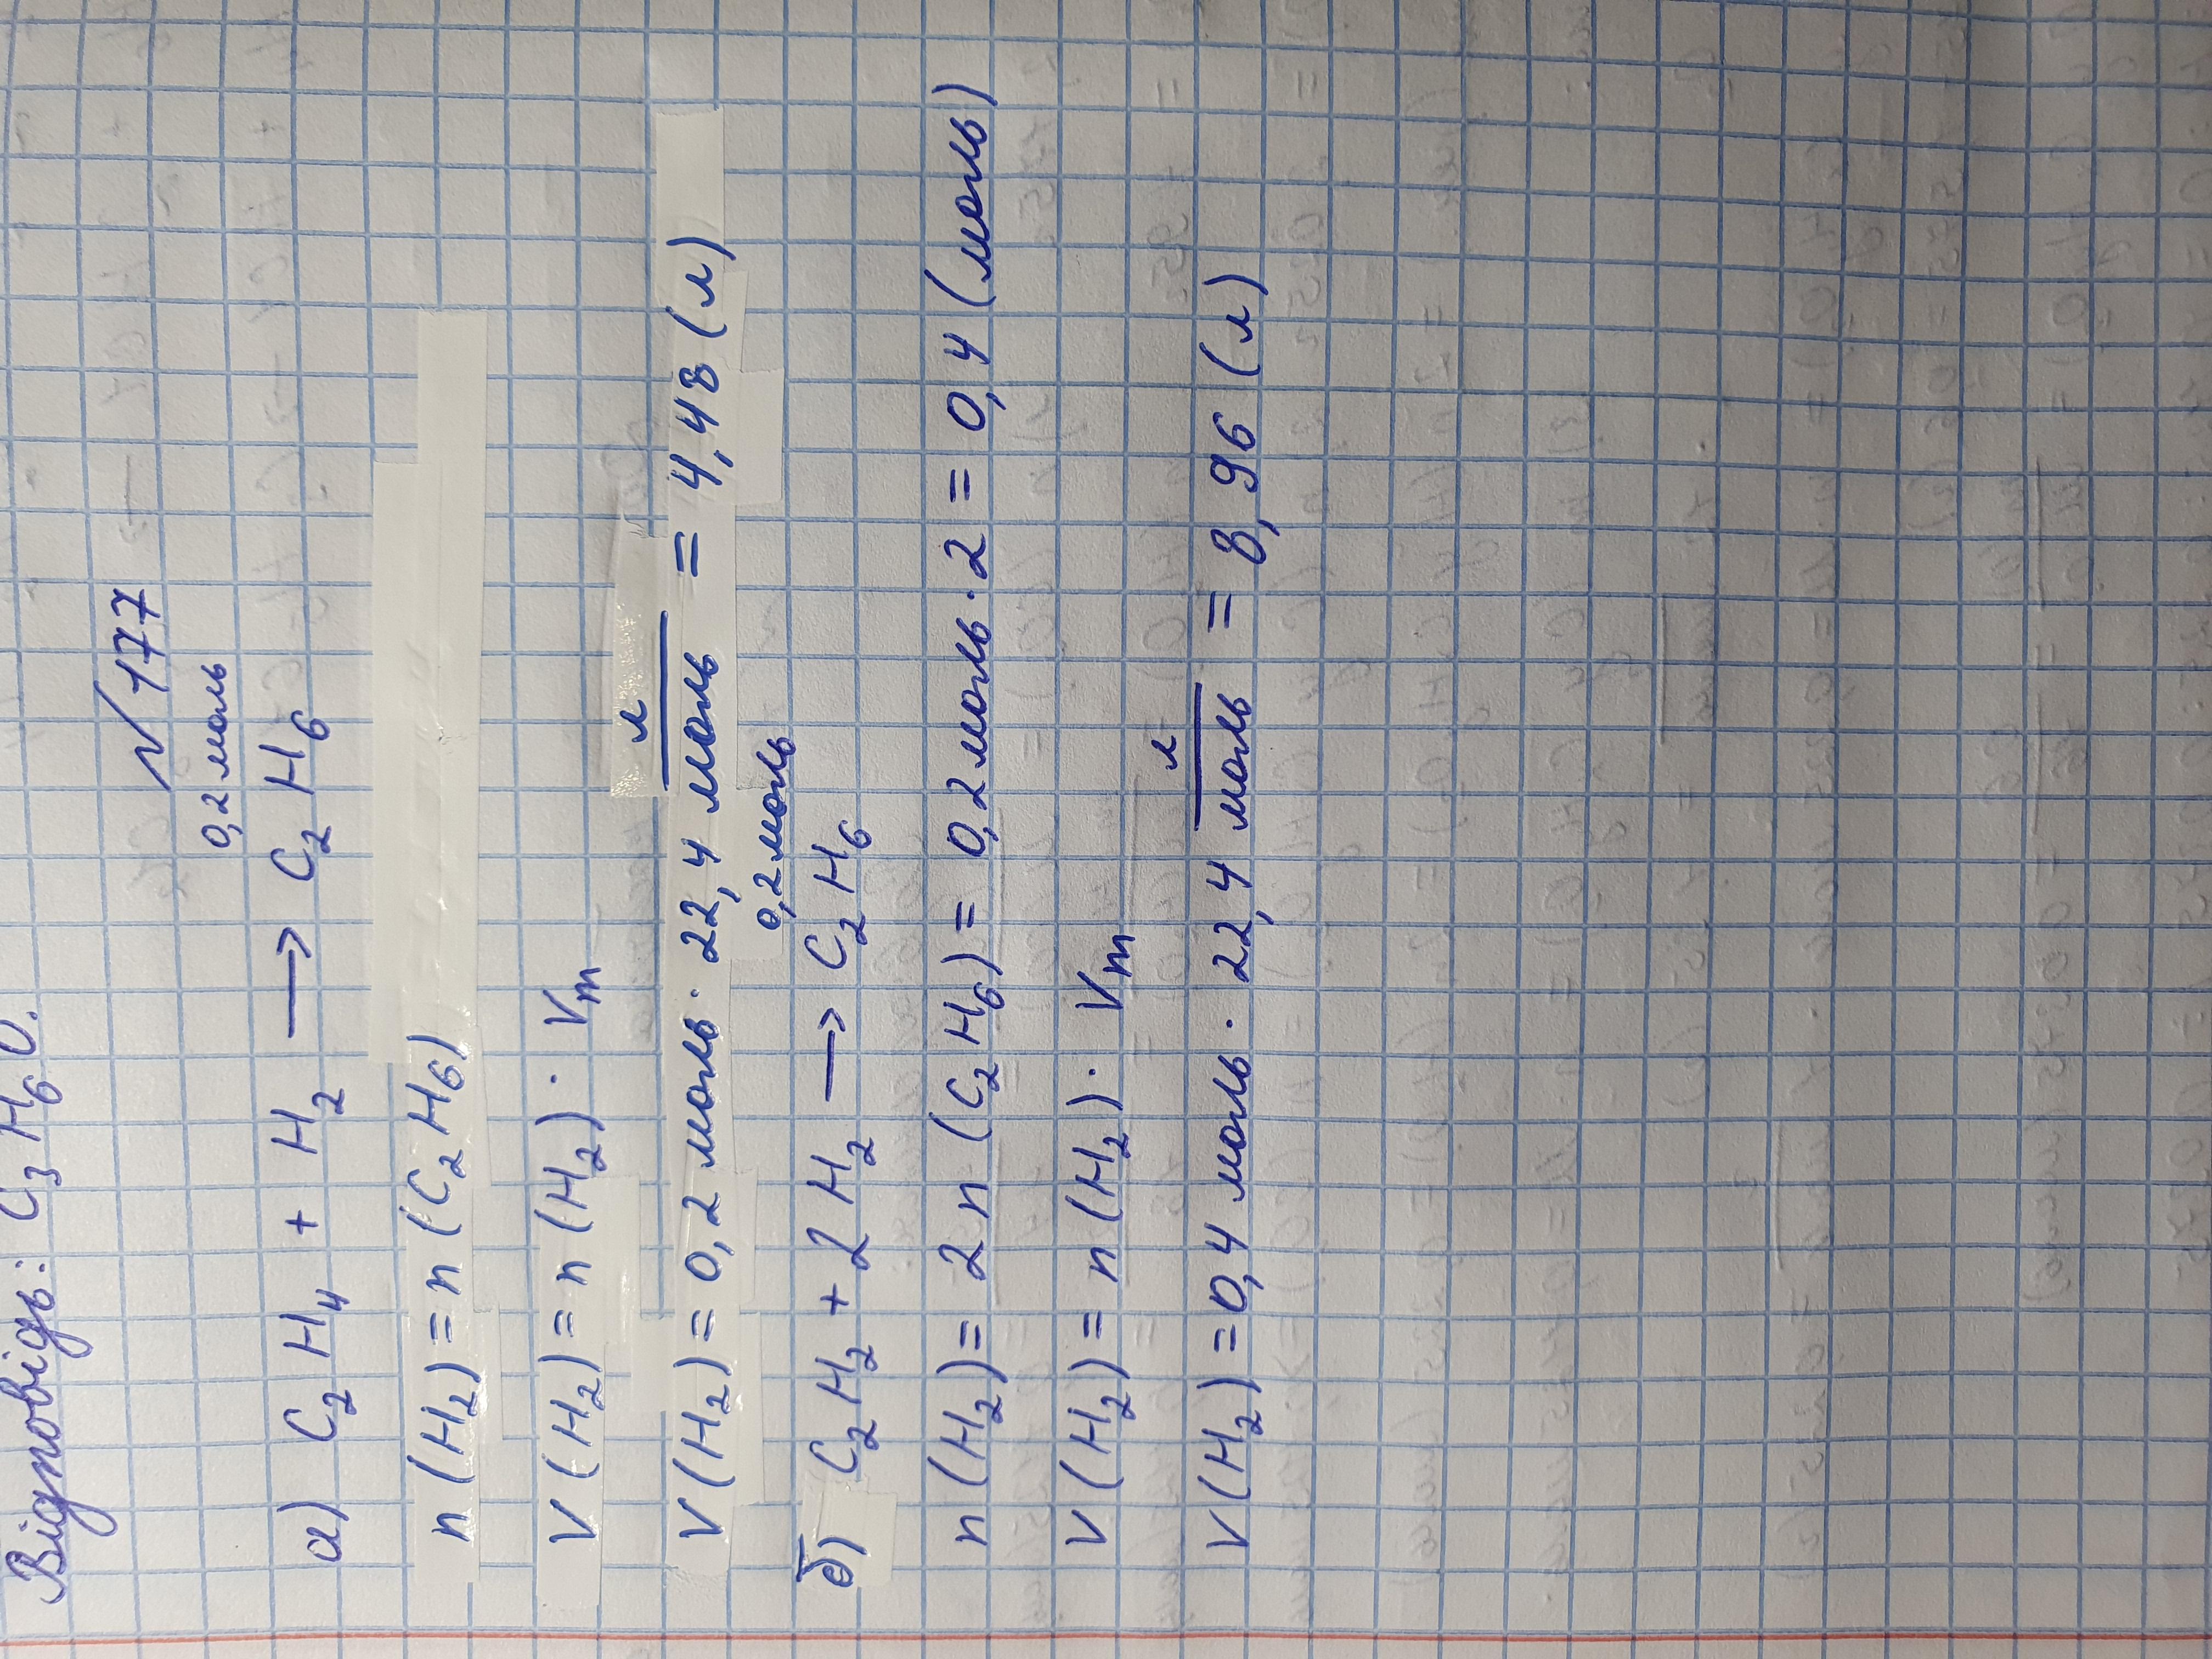 Відповідь: C₃H₆O.
№177
0,2 моль
а) C₂H₄ + H₂ → C₂H₆
n(H₂) = n(C₂H₆)
V(H₂) = n(H₂) · Vm
V(H₂) = 0,2 моль · 22,4 л/моль = 4,48 (л)
0,2 моль
б) C₂H₂ + 2H₂ → C₂H₆
n(H₂) = 2n(C₂H₆) = 0,2 моль · 2 = 0,4 (моль)
V(H₂) = n(H₂) · Vm
V(H₂) = 0,4 моль · 22,4 л/моль = 8,96 (л)